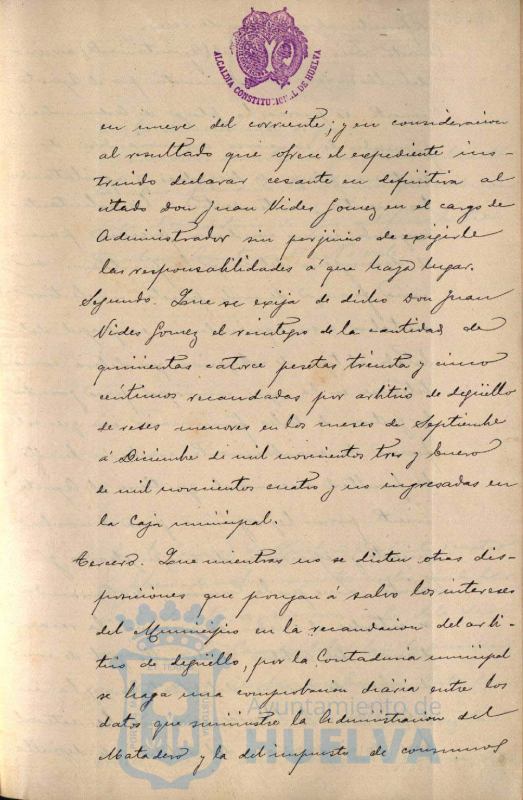 ALCALDIA CONSTITUCIONAL DE HUELVA
en nueve del corriente; y en consideracion
al resultado que ofrece el expediente ins-
truido declarar cesante en definitiva al
citado Don Juan Vides Gomez en el cargo de
Administrador sin perjuicio de exigirle
las responsabilidades á que haya lugar.
Segundo. Que se exija de dicho Don Juan
Vides Gomez el reintegro de la cantidad de
quinientas catorce pesetas treinta y cinco
céntimos recaudadas por arbitrio de degüello
de reses menores en los meses de Septiembre
á Diciembre de mil novecientos tres y Enero
de mil novecientos cuatro y no ingresadas en
la Caja municipal.
Tercero. Que mientras no se dicten otras dis-
posiciones que pongan á salvo los intereses
del Municipio en la recaudacion del arbi-
trio de degüello, por la Contaduria municipal
se haga una comprobacion diaria entre los
datos que suministre la Administracion del
Matadero y la del impuesto de consumos
Ayuntamiento de
HUELVA